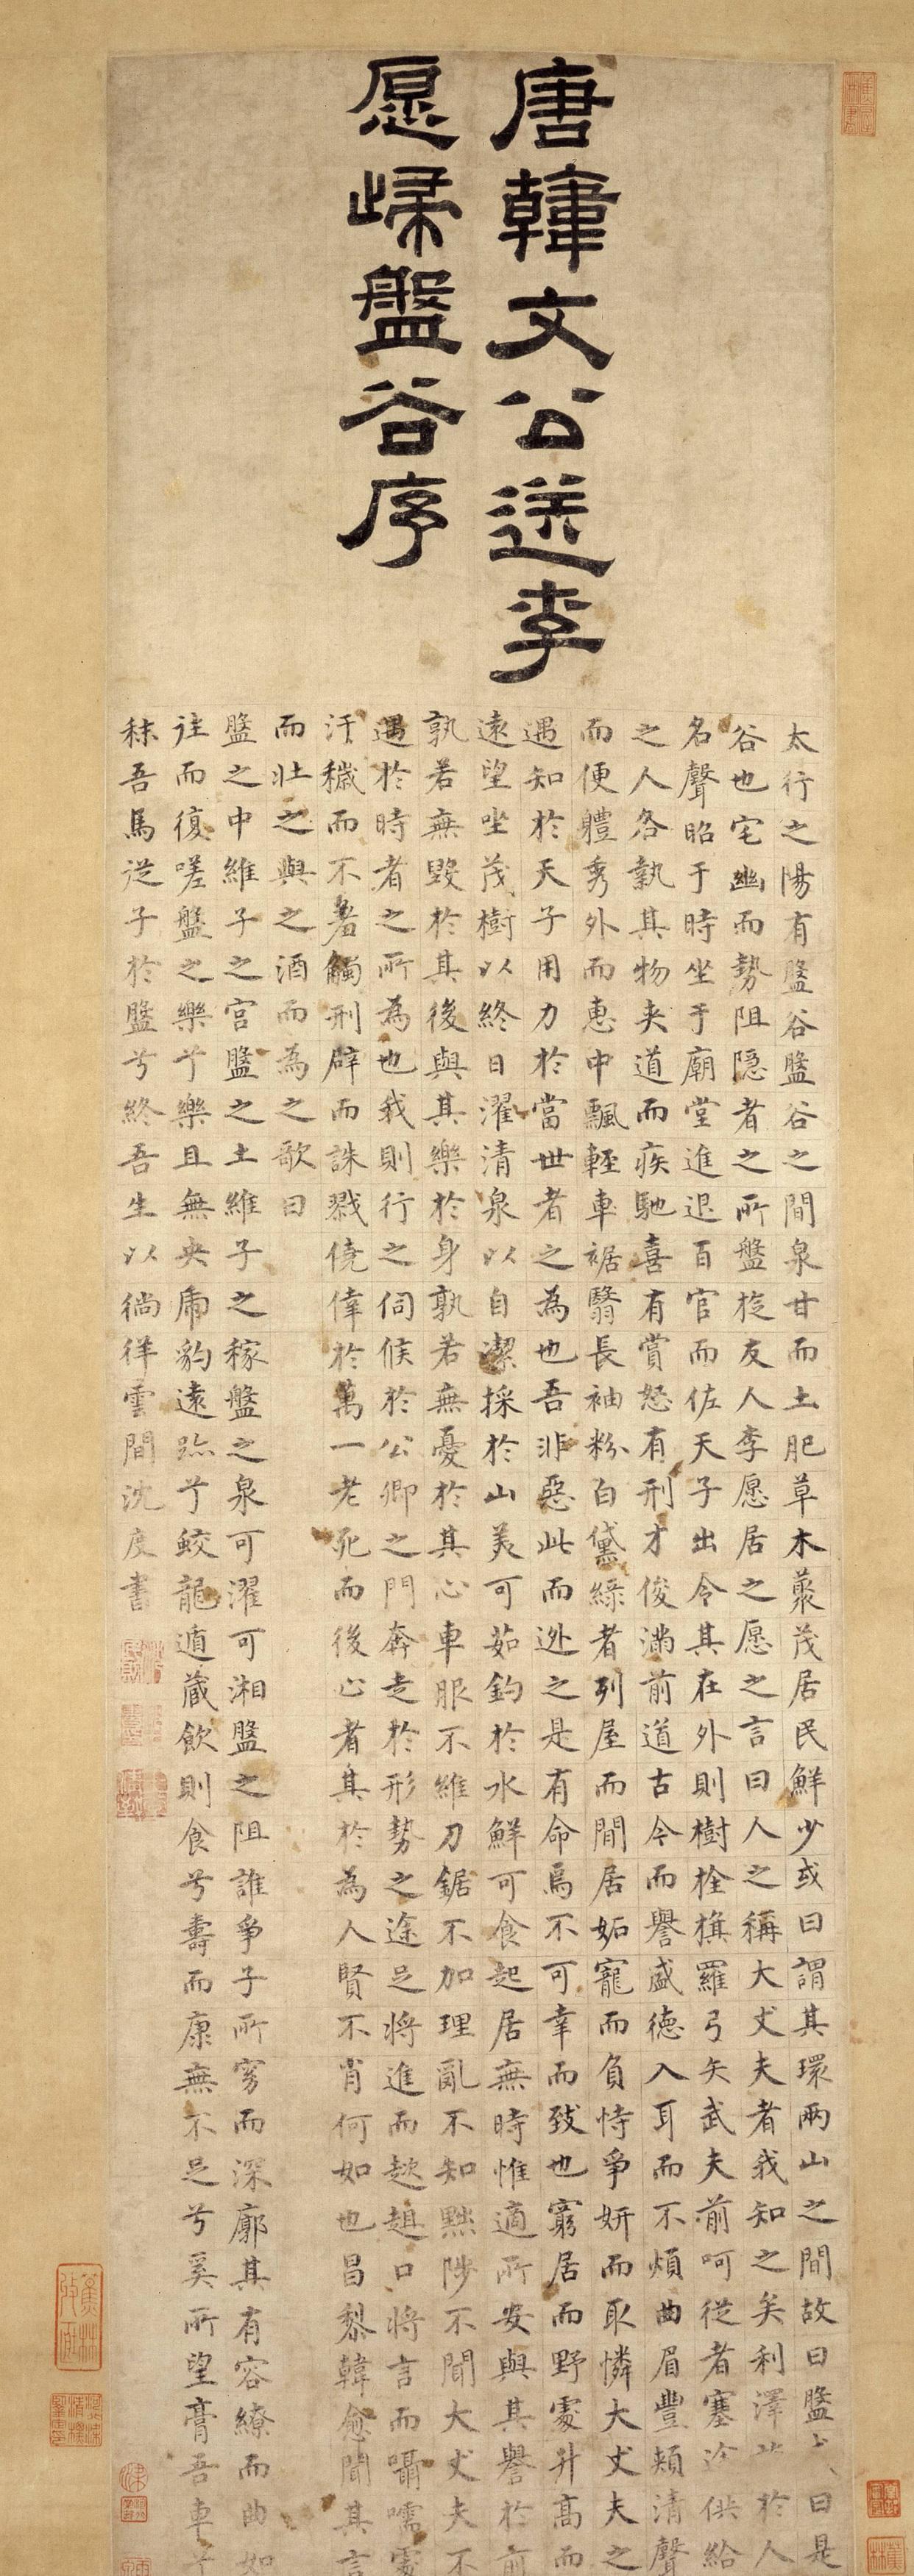 唐韓文公送李
愿歸盤谷序
太行之陽有盤谷盤谷之間泉甘而土肥草木藂茂居民鮮少或曰謂其環兩山之間故曰盤曰是
谷也宅幽而勢阻隱者之所盤旋友人李愿居之愿之言曰人之稱大丈夫者我知之矣利澤於人
名聲昭于時坐于廟堂進退百官而佐天子出令其在外則樹栓旗羅弓矢武夫前呵從者塞途供給
之人各執其物夾道而疾馳喜有賞怒有刑才俊滿前道古今而譽盛德入耳而不煩曲眉豐頰清聲
而便軆秀外而惠中飄輕車裾翳長袖粉白黛綠者列屋而閒居妬寵而負恃爭妍而取憐大丈夫之
遇知於天子用力於當世者之為也吾非惡此而逃之是有命焉不可幸而致也窮居而野處升高而
遠望坐茂樹以終日濯清泉以自潔採於山美可茹釣於水鮮可食起居無時惟適所安與其譽於前
孰若無毀於其後與其樂於身孰若無憂於其心車服不維刀鋸不加理亂不知黜陟不聞大丈夫不
遇於時者之所為也我則行之伺候於公卿之門奔走於形勢之途足將進而趑趄口將言而囁嚅處
汙穢而不羞觸刑辟而誅戮僥倖於萬一老死而後止者其於為人賢不肖何如也昌黎韓愈聞其言
而壯之與之酒而為之歌曰
盤之中維子之宮盤之土維子之稼盤之泉可濯可湘盤之阻誰爭子所窈而深廓其有容繚而曲如
往而復嗟盤之樂兮樂且無央虎豹遠跡兮蛟龍遁藏飲則食兮壽而康無不足兮奚所望膏吾車兮
秣吾馬從子於盤兮終吾生以徜徉雲間沈度書